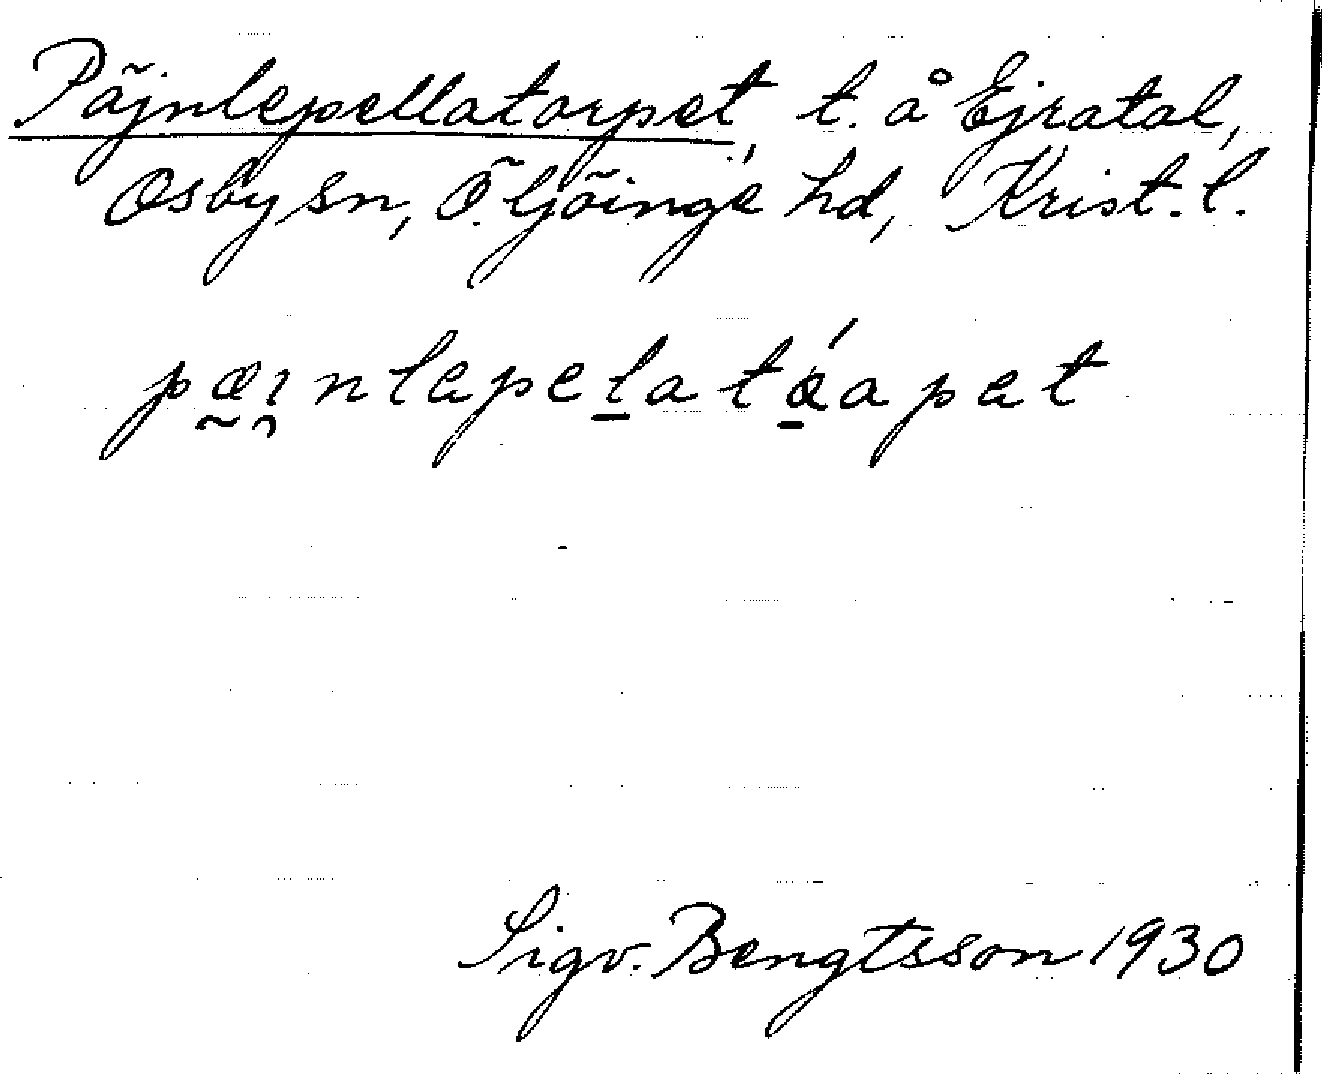 Päjnlepellatorpet, t. å Ejratal,
Osby sn, Ö. Göinge hd, Krist. l.
pæınlapelatáapat
Sigv. Bengtsson 1930